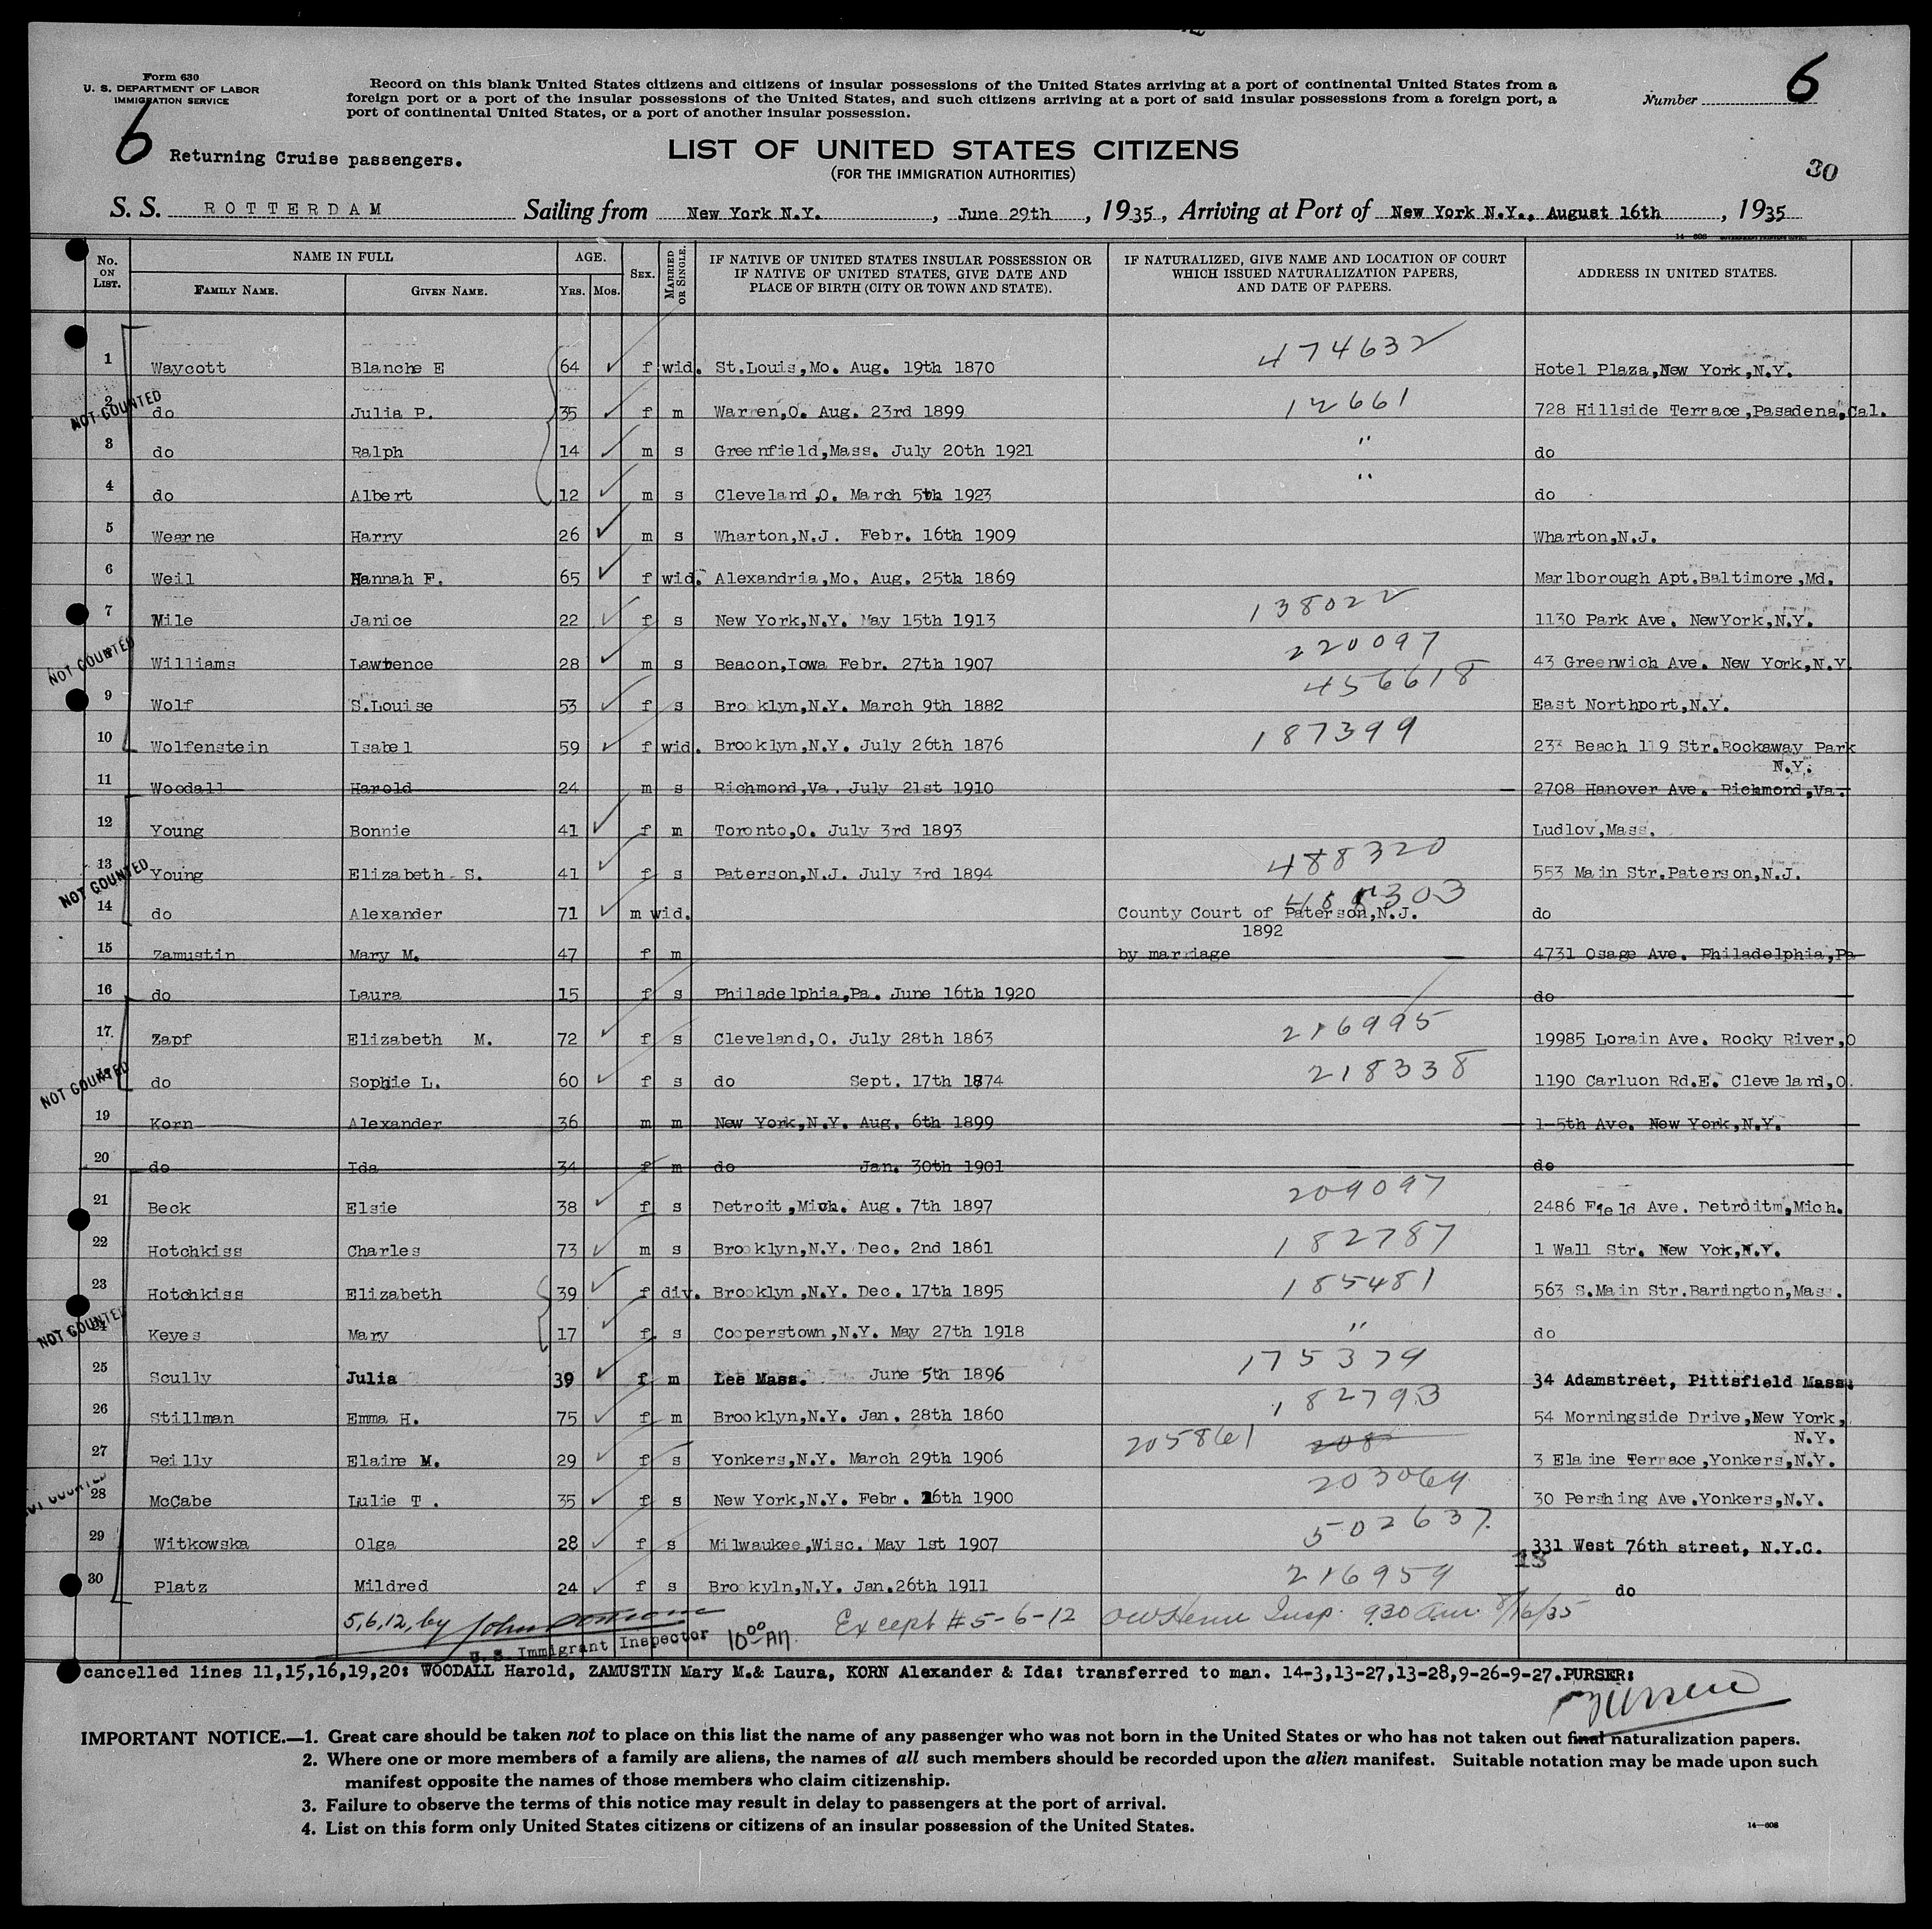 Form 630
U. S. DEPARTMENT OF LABOR
IMMIGRATION SERVICE
Record on this blank United States citizens and citizens of insular possessions of the United States arriving at a port of continental United States from a
foreign port or a port of the insular possessions of the United States, and such citizens arriving at a port of said insular possessions from a foreign port, a
port of continental United States, or a port of another insular possession.
Number 6
6 Returning Cruise passengers.
LIST OF UNITED STATES CITIZENS
(FOR THE IMMIGRATION AUTHORITIES)
30
S. S. ROTTERDAM Sailing from New York N.Y., June 29th, 1935, Arriving at Port of New York N.Y., August 16th, 1935
14-608
No. ON LIST. NAME IN FULL AGE. SEX. MARRIED OR SINGLE. IF NATIVE OF UNITED STATES INSULAR POSSESSION OR IF NATIVE OF UNITED STATES, GIVE DATE AND PLACE OF BIRTH (CITY OR TOWN AND STATE). IF NATURALIZED, GIVE NAME AND LOCATION OF COURT WHICH ISSUED NATURALIZATION PAPERS, AND DATE OF PAPERS. ADDRESS IN UNITED STATES.
FAMILY NAME. GIVEN NAME. YRS. MOS.
1 Waycott Blanche E 64 f wid. St.Louis,Mo. Aug. 19th 1870 474632 Hotel Plaza,New York,N.Y.
NOT COUNTED
2 do Julia P. 35 f m Warren,O. Aug. 23rd 1899 12661 728 Hillside Terrace,Pasadena,Cal.
3 do Ralph 14 m s Greenfield,Mass. July 20th 1921 " do
4 do Albert 12 m s Cleveland,O. March 5th 1923 " do
5 Wearne Harry 26 m s Wharton,N.J. Febr. 16th 1909 Wharton,N.J.
6 Weil Hannah F. 65 f wid. Alexandria,Mo. Aug. 25th 1869 Marlborough Apt.Baltimore,Md.
7 Mile Janice 22 f s New York,N.Y. May 15th 1913 138022 1130 Park Ave. NewYork,N.Y.
NOT COUNTED
8 Williams Lawrence 28 m s Beacon,Iowa Febr. 27th 1907 220097 43 Greenwich Ave. New York,N.Y.
9 Wolf S.Louise 53 f s Brooklyn,N.Y. March 9th 1882 456618 East Northport,N.Y.
10 Wolfenstein Isabel 59 f wid. Brooklyn,N.Y. July 26th 1876 187399 233 Beach 119 Str.Rockaway Park
N.Y.
11 Woodall Harold 24 m s Richmond,Va. July 21st 1910 2708 Hanover Ave. Richmond,Va.
12 Young Bonnie 41 f m Toronto,O. July 3rd 1893 Ludlov,Mass.
13 Young Elizabeth S. 41 f s Paterson,N.J. July 3rd 1894 488320 553 Main Str.Paterson,N.J.
NOT COUNTED
14 do Alexander 71 m wid. County Court of Paterson,N.J. do
1892
15 Zamustin Mary M. 47 f m by marriage 4731 Osage Ave. Philadelphia,Pa
16 do Laura 15 f s Philadelphia,Pa. June 16th 1920 do
17 Zapf Elizabeth M. 72 f s Cleveland,O. July 28th 1863 216995 19985 Lorain Ave. Rocky River,O
NOT COUNTED
do Sophie L. 60 f s do Sept. 17th 1874 218338 1190 Carluon Rd.E. Cleveland,O.
19 Korn Alexander 36 m m New York,N.Y. Aug. 6th 1899 1-5th Ave. New York,N.Y.
20 do Ida 34 f m do Jan. 30th 1901 do
21 Beck Elsie 38 f s Detroit,Mich. Aug. 7th 1897 209097 2486 Field Ave. Detroitm,Mich.
22 Hotchkiss Charles 73 m s Brooklyn,N.Y. Dec. 2nd 1861 182787 1 Wall Str. New Yok,N.Y.
23 Hotchkiss Elizabeth 39 f div. Brooklyn,N.Y. Dec. 17th 1895 185481 563 S.Main Str.Barington,Mass.
NOT COUNTED
Keyes Mary 17 f s Cooperstown,N.Y. May 27th 1918 " do
25 Scully Julia 39 f m Lee Mass. June 5th 1896 175379 34 Adamstreet, Pittsfield Mass.
26 Stillman Emma H. 75 f m Brooklyn,N.Y. Jan. 28th 1860 182793 54 Morningside Drive,New York,
N.Y.
27 Reilly Elaine M. 29 f s Yonkers,N.Y. March 29th 1906 205861 208 3 Elaine Terrace,Yonkers,N.Y.
NOT COUNTED
28 McCabe Lulie T. 35 f s New York,N.Y. Febr. 26th 1900 203064 30 Pershing Ave.Yonkers,N.Y.
29 Witkowska Olga 28 f s Milwaukee,Wisc. May 1st 1907 502637 331 West 76th street, N.Y.C.
30 Platz Mildred 24 f s Brookyln,N.Y. Jan.26th 1911 216959 do
5,6,12, by John
U. S. Immigrant Inspector 10 00 AM. Except #5-6-12 Insp. 930 am. 8/16/35
cancelled lines 11,15,16,19,20: WOODALL Harold, ZAMUSTIN Mary M.& Laura, KORN Alexander & Ida: transferred to man. 14-3,13-27,13-28,9-26-9-27.PURSER:
IMPORTANT NOTICE.—1. Great care should be taken not to place on this list the name of any passenger who was not born in the United States or who has not taken out final naturalization papers.
2. Where one or more members of a family are aliens, the names of all such members should be recorded upon the alien manifest. Suitable notation may be made upon such
manifest opposite the names of those members who claim citizenship.
3. Failure to observe the terms of this notice may result in delay to passengers at the port of arrival.
4. List on this form only United States citizens or citizens of an insular possession of the United States.
14-608